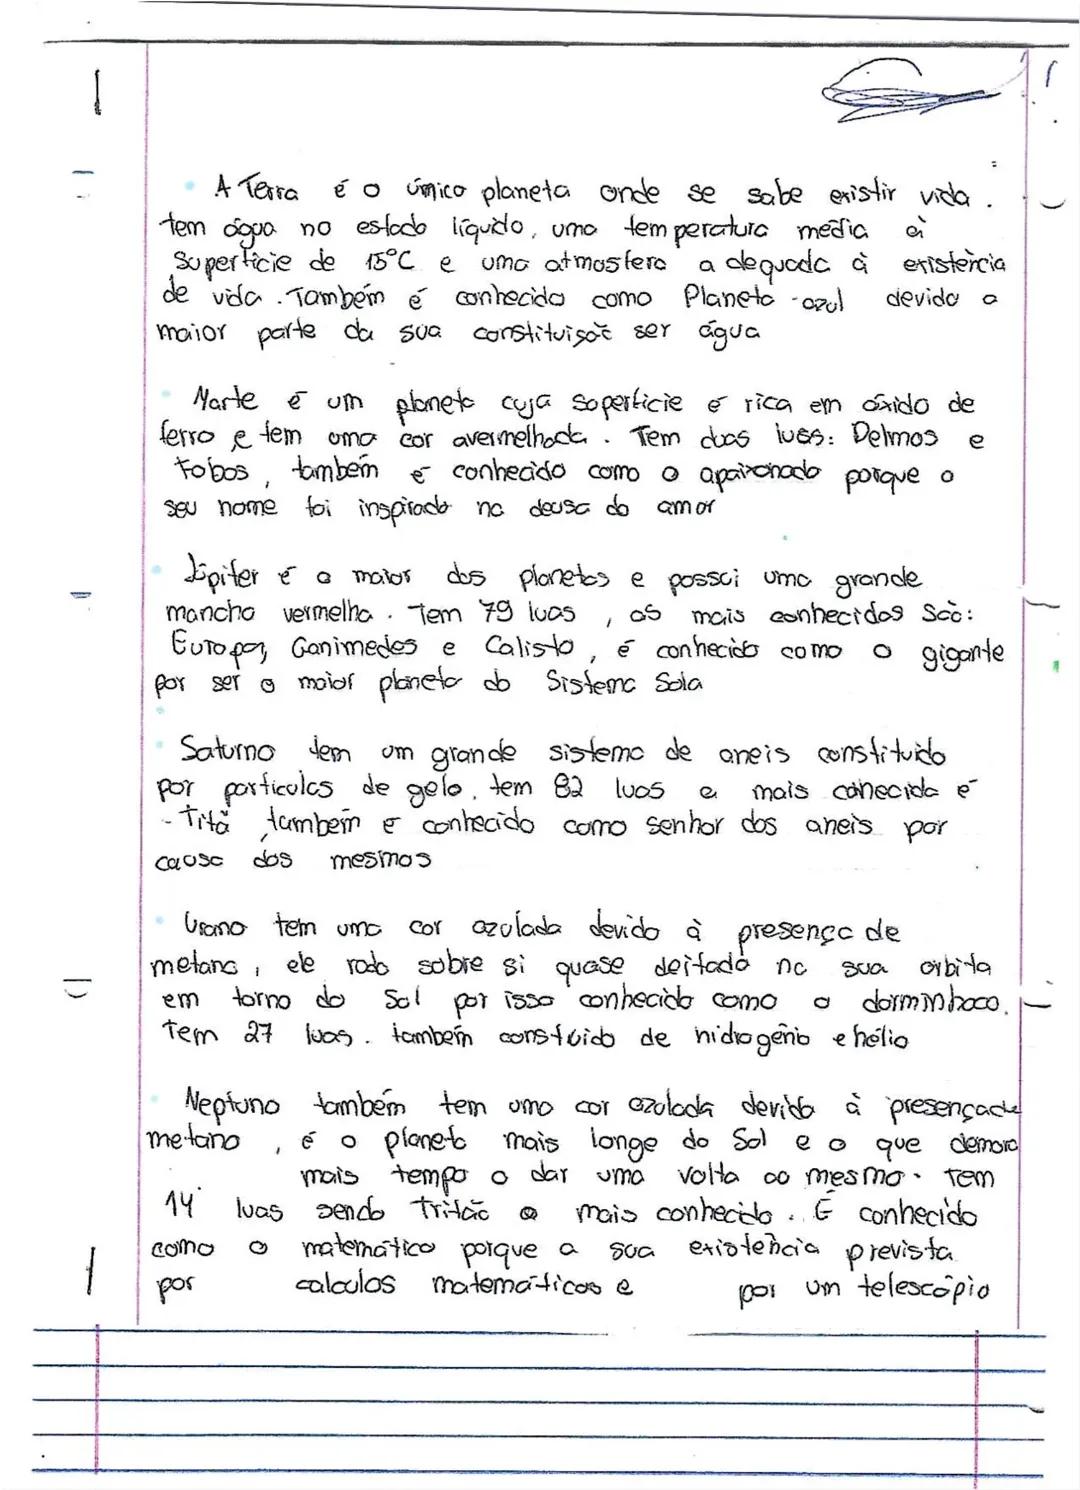 A Terra é o único planeta onde se sabe existir vida.
tem água no estado líquido, uma temperatura média à
superfície de 15°C e uma atmosfera adequada à existência
de vida. Também é conhecido como Planeta azul devido a
maior parte da sua constituição ser água
Marte é um planeta cuja superfície é rica em óxido de
ferro e tem uma cor avermelhada. Tem duas luas: Deimos e
Fobos, também é conhecido como o apaixonado porque o
seu nome foi inspirado na deusa do amor
Júpiter é o maior dos planetas e possui uma grande
mancha vermelha. Tem 79 luas, as mais conhecidas são:
Europa, Ganimedes e Calisto, é conhecido como o gigante
por ser o maior planeta do Sistema Sola
Saturno tem um grande sistema de aneis constituido
por particulas de gelo, tem 82 luas a mais conecida é
- Titã também é conhecido como senhor dos aneis por
causa dos mesmos
Urano tem uma cor azulada devido à presença de
metano, ele roda sobre si quase deitado na sua orbita
em torno do Sol por isso conhecido como o dorminhoco.
Tem 27 luas. também constuido de hidrogênio e hélio
Neptuno também tem uma cor azulada devido à presença de
metano, é o planeta mais longe do Sol e o que demora
mais tempo a dar uma volta ao mesmo. Tem
14 luas sendo Tritão a mais conhecida. É conhecido
como o matemático porque a sua existência prevista
por calculos matemáticos e por um telescópio